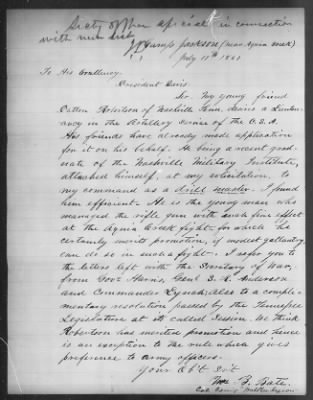 with new list
Camp Jackson (near Aquia creek)
July 11th 1861
To His Excellency.
President Davis.
Sir. My young friend
Cotten Robertson of Nashville Tenn. desires a Lieuten-
ancy in the Artillery Service of the C.S.A.
His friends have already made application
for it on his behalf. He being a recent grad-
uate of the Nashville Military Institute,
attached himself, at my solicitation, to
my command as a drill master. I found
him efficient. He is the young man who
managed the rifle gun with such fine effect
at the Aquia Creek fight - for which he
certainly merits promotion, if modest gallantry
can do so in such a fight. I refer you to
the letters left with the Secretary of War,
from Govr Harris, Genl S. R. Anderson
and Commander Lynch; also to a compli-
mentary resolution passed by the Tennessee
Legislature at its called session. We think
Robertson has merited promotion and hence
is an exception to the rule which gives
preference to army officers.
Your Obt Svt
Wm. B. Bate.